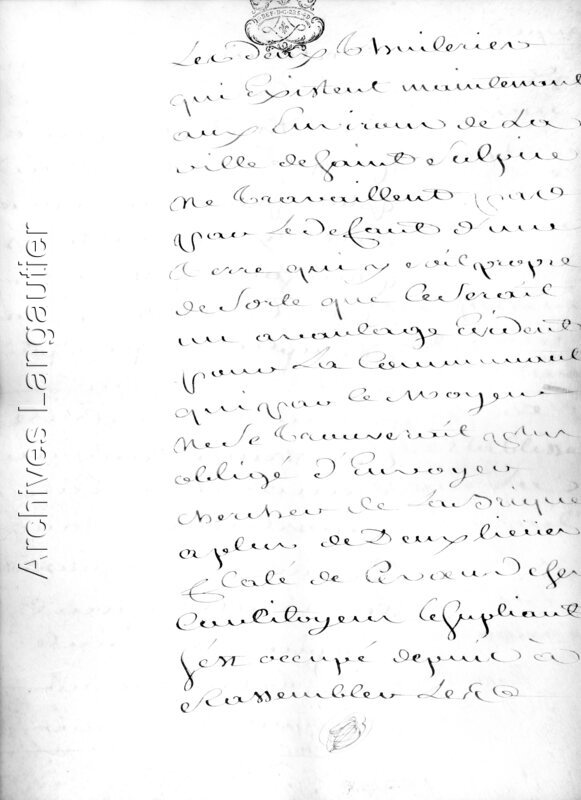 Les deux Thuileries
qui Existent maintenant
aux Environs de La
ville de Saint Sulpice
ne Travaillent pas
par Le defaut d'une
Terre qui y soit propre
de Sorte que Ce Serait
un avantage Evident
pour La Communauté
qui par Ce Moyen
ne Se Trouverait plus
obligé d'Envoyer
chercher de La Brique
a plus de Deux lieües
Zelé de
Concitoyens le Supliant
s'est occupé depuis à
Rassembler Les
Archives Langautier